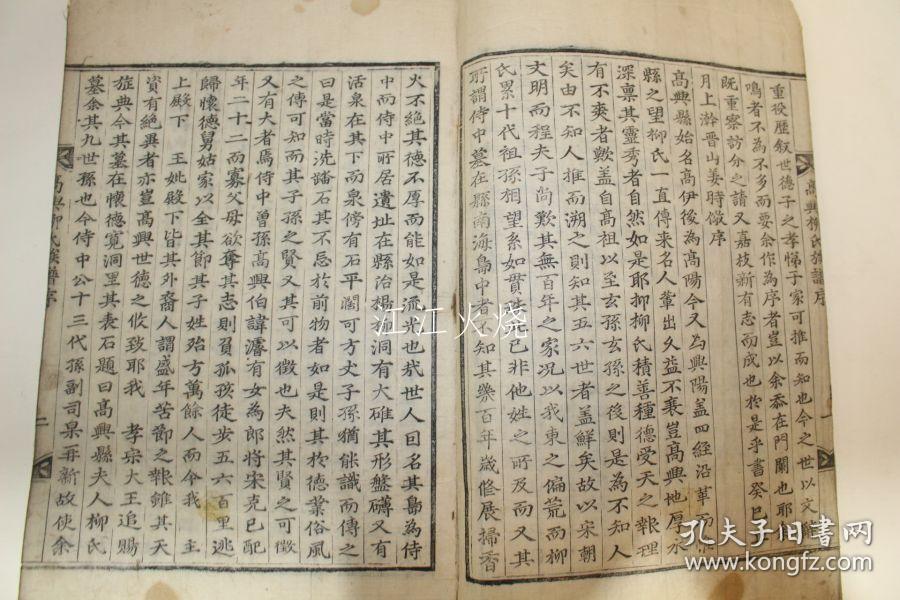 重役歷叙世德子之孝悌子家可推而知也今之世以文
鳴者不為不多而要余作為序者豈以余忝在門闌也耶
既重察訪分之請又嘉枝新有志而成也於是乎書癸巳
月上澣晉山姜時儆序
高興縣始名高伊後為高陽今又為興陽盖四經沿革而
縣之望柳氏一直傳来名人輩出久益不衰豈高興地厚水
深禀其靈秀者自然如是耶抑柳氏積善種德爱天之報理
有不爽者歟盖自高祖以至玄孫玄孫之後則是為不知人
矣由不知人推而溯之則知其五六世者盖鮮矣故以宋朝
文明而程夫子尚歎其無百年之家况以我東之偏荒而柳
氏累十代祖孫相望系如貫珠已非他姓之所及而又其
所謂侍中墓在縣南海島中者不知其㡬百年歲修展掃香
高興柳氏族譜序
一
火不絶其德不厚而能如是流光也㢤世人曰名其島為侍
中而侍中所居遺址在縣治楊柳洞有大碓其形盤礴又有
活泉在其下而泉傍有石平濶可方丈子孫猶能識而傳之
曰是當時洗踏石其不忌於前物者如是則其於德業俗風
之傳可知而其子孫之賢又其可以徵也夫然其賢之可徵
又有大者焉侍中曾孫高興伯諱濯有女為郎將宋克已配
年二十二而寡父母欲奪其志則負孤孩徒步五六百里逃
歸懷德舅姑家以全其節其子姓殆方萬餘人而今我 主
上殿下 王妣殿下皆其外裔人謂盛年苦節之報雖其天
資有絶異者亦豈高興世德之攸致耶我 孝宗大王追賜
旌典今其墓在懷德寬洞里其表石題曰高興縣夫人柳氏
墓余其九世孫也今侍中公十三代孫副司果再新故使余
高興柳氏族譜序
二
江江火烧
孔夫子旧书网
www.kongfz.com